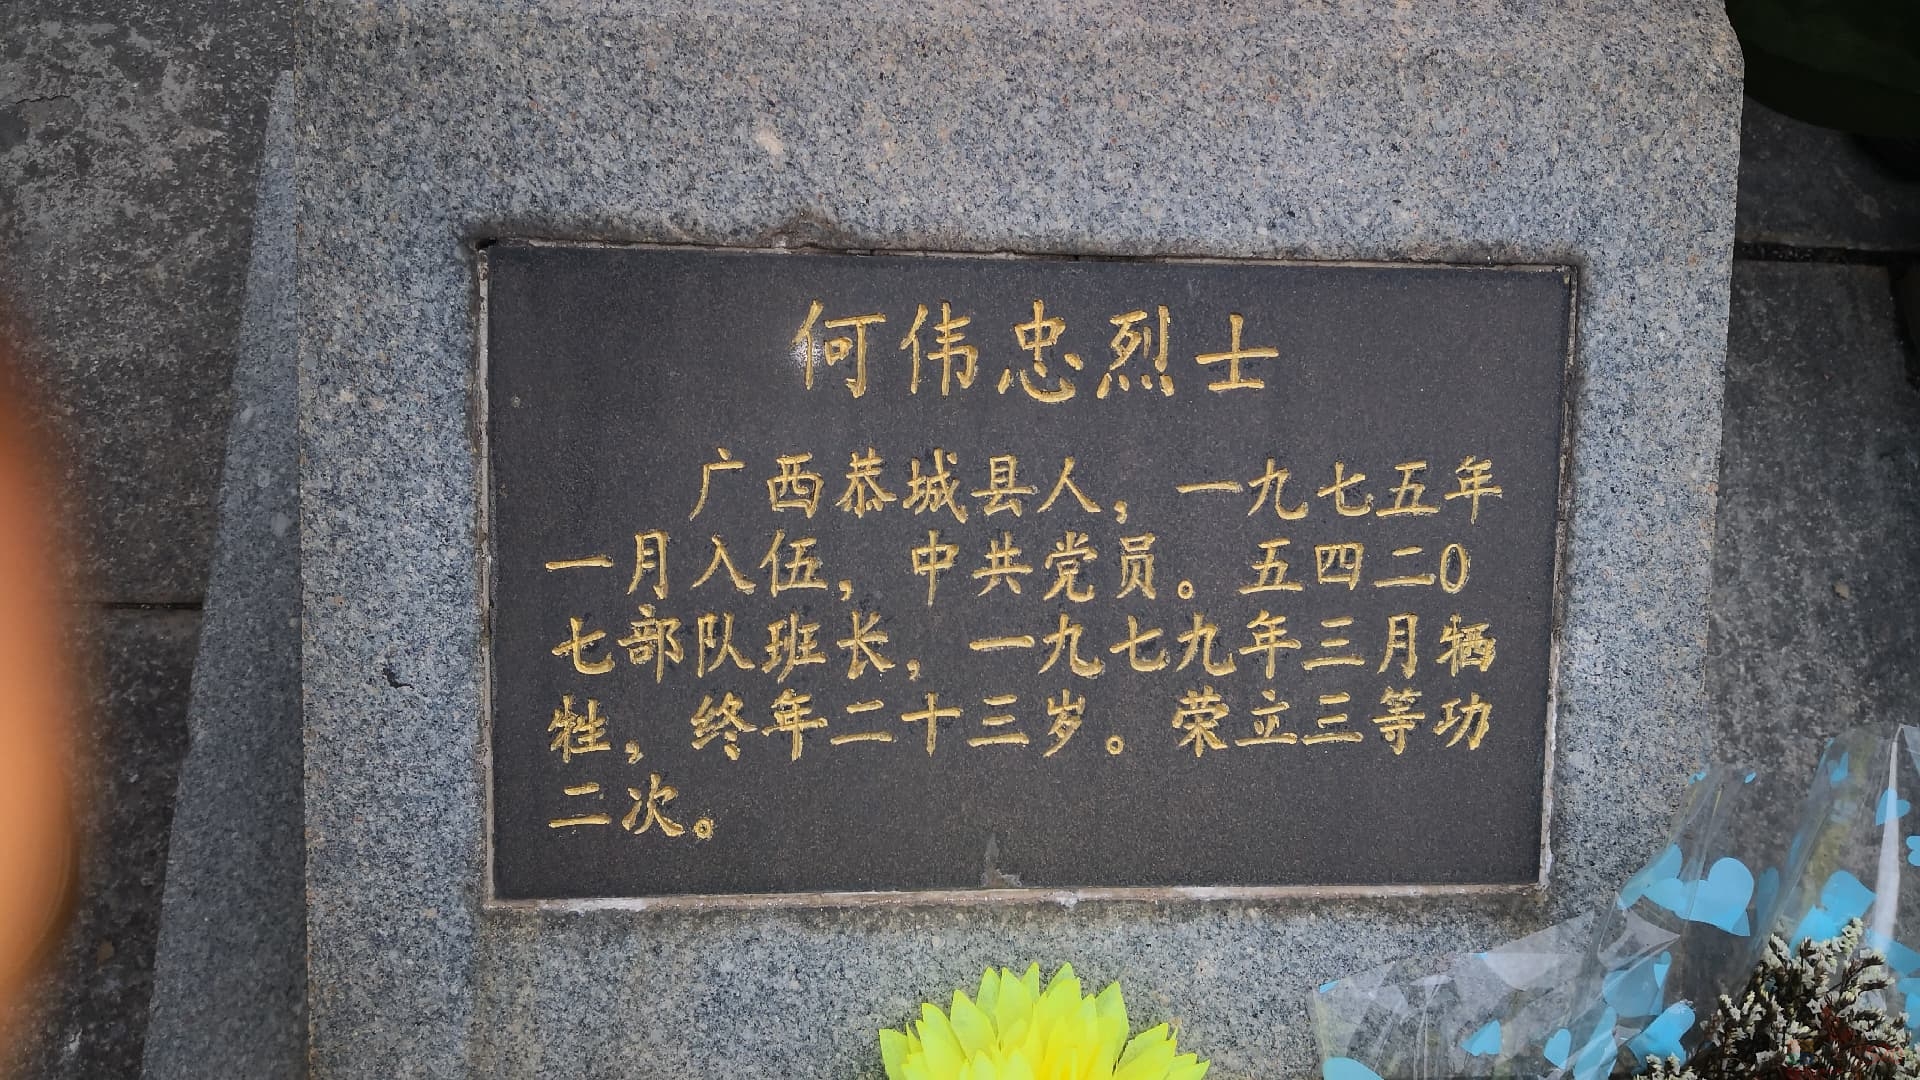 何伟忠烈士
广西恭城县人，一九七五年
一月入伍，中共党员。五四二0
七部队班长，一九七九年三月牺
牲，终年二十三岁。荣立三等功
二次。